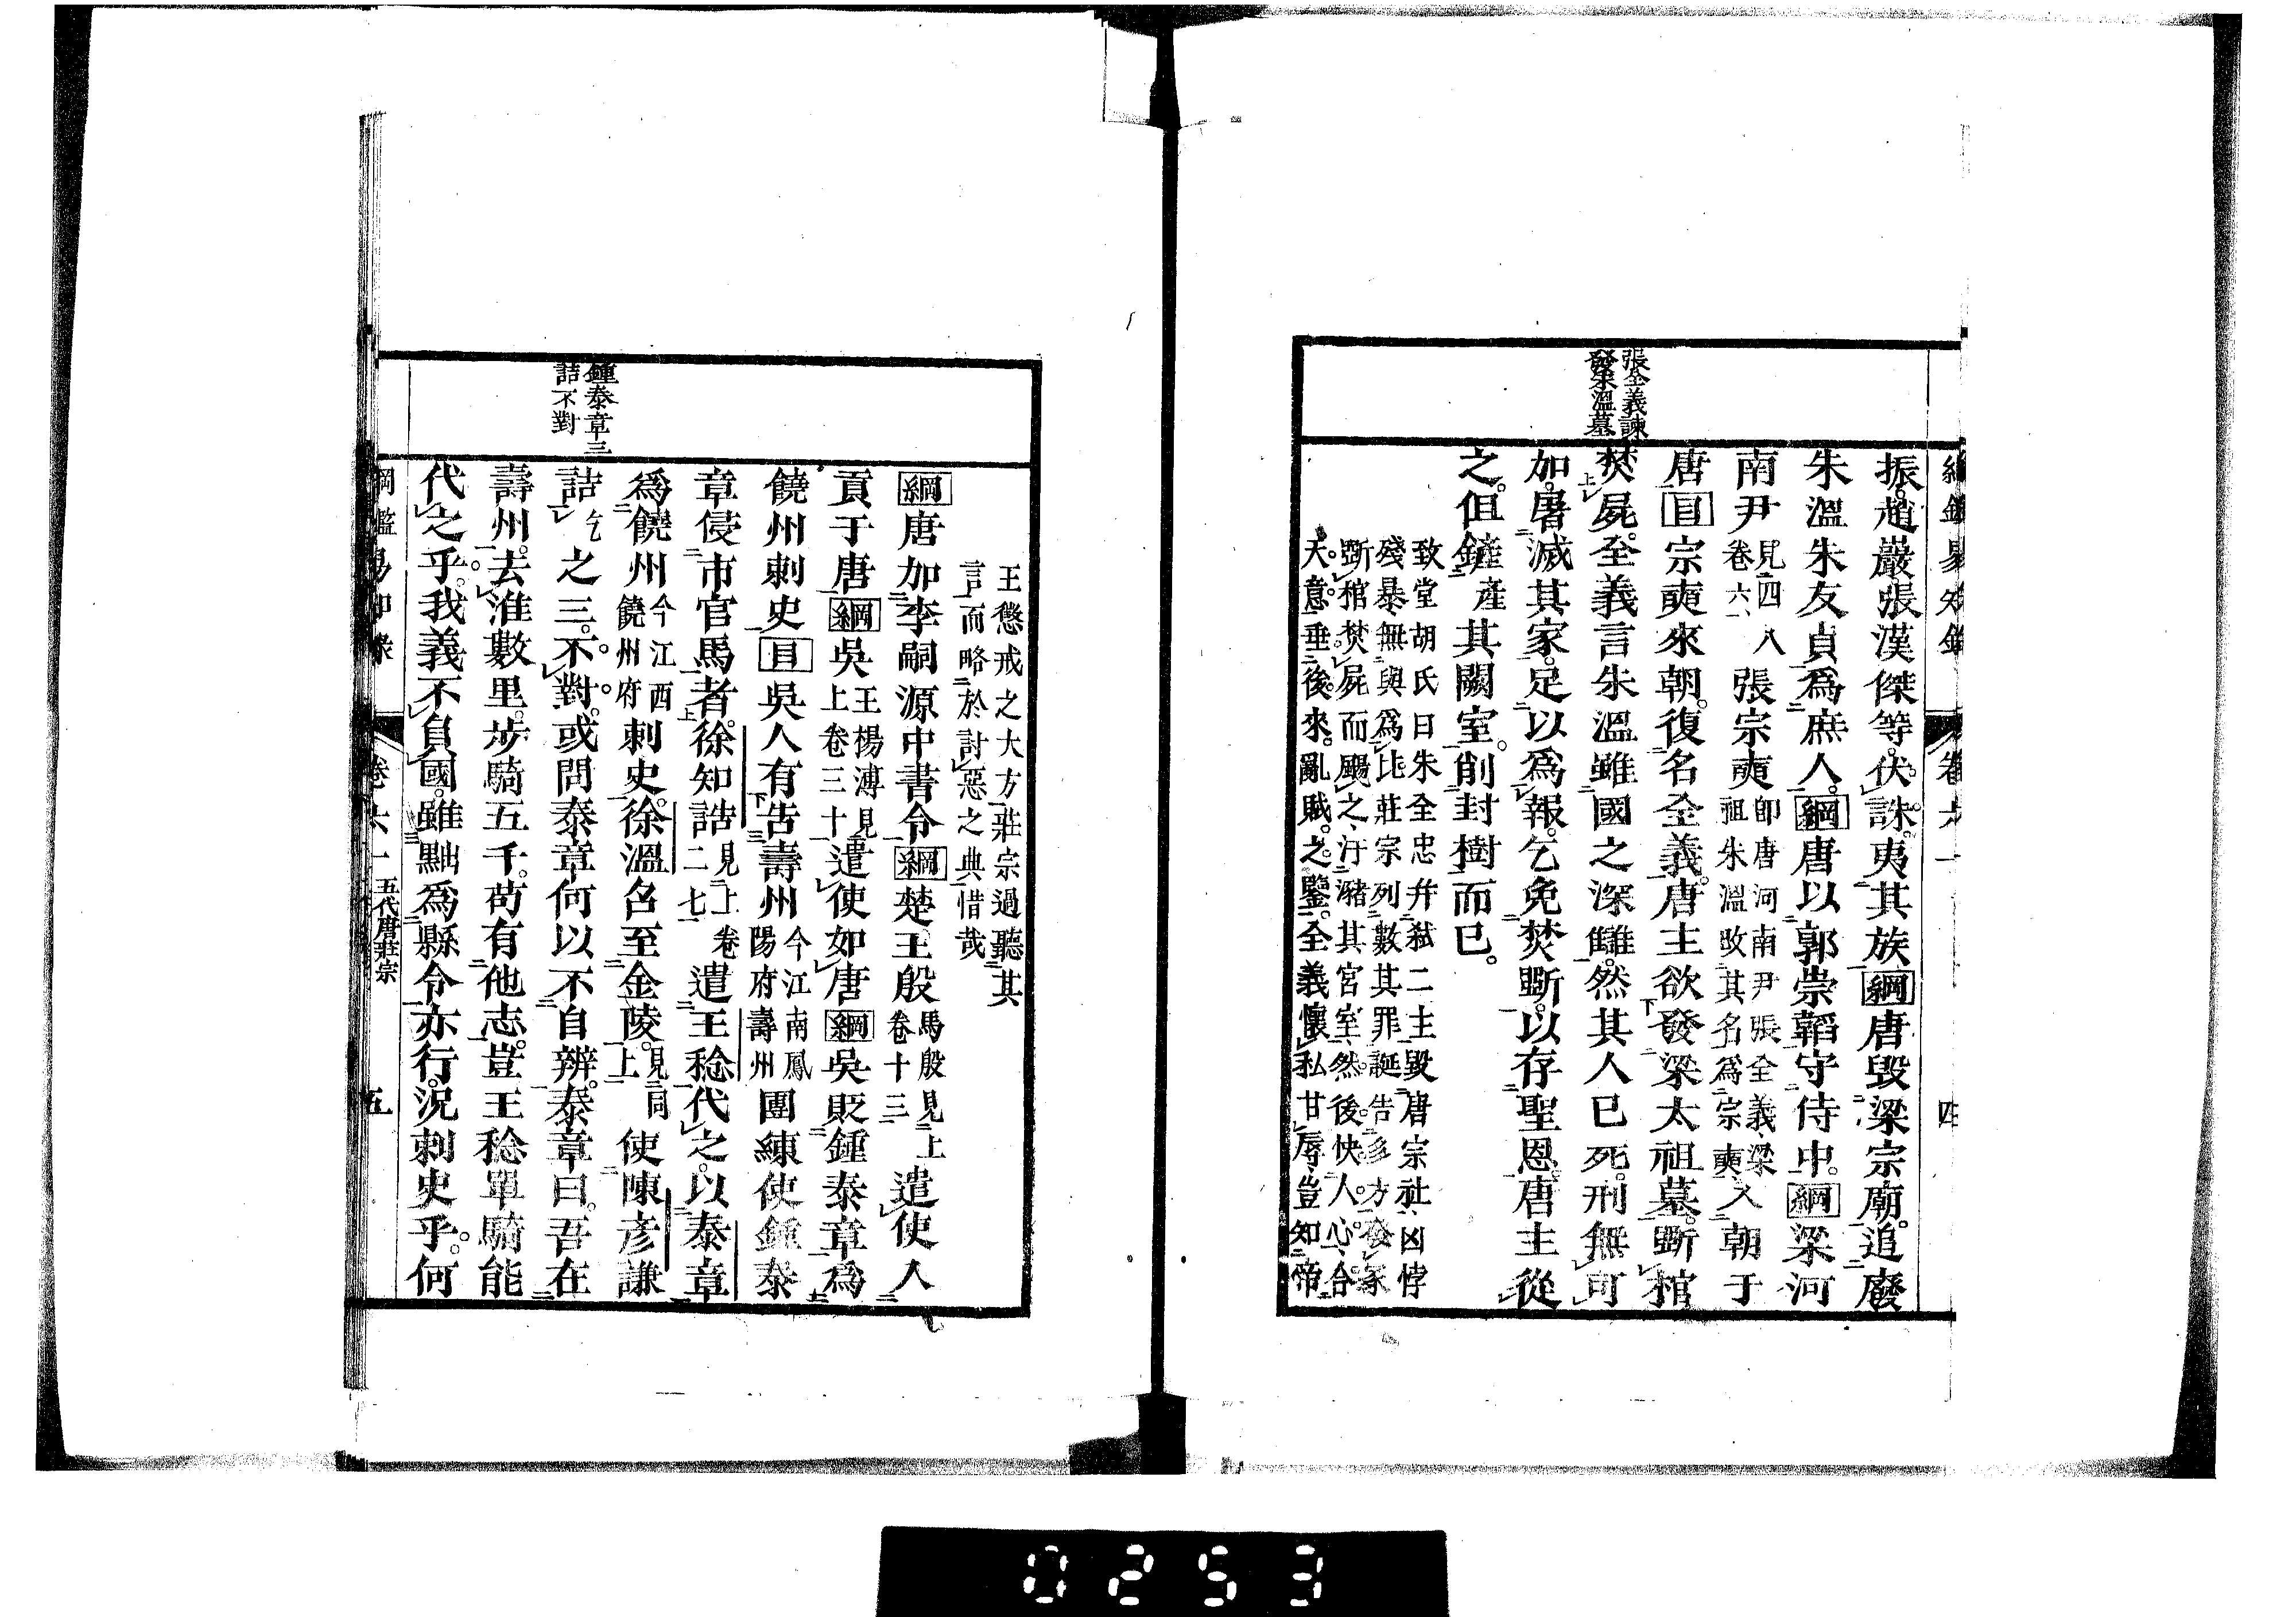 綱鑑易知錄 卷六一 四
張全義諫
發朱溫墓
振趙巖張漢傑等伏誅夷其族綱唐毀梁宗廟追廢
朱溫朱友貞爲庶人綱唐以郭崇韜守侍中綱梁河
南尹見四八卷六一張宗奭卽唐河南尹張全義梁祖朱溫改其名爲宗奭入朝于
唐目宗奭來朝復名全義唐主欲發梁太祖墓斲棺
焚屍全義言朱溫雖國之深讎然其人已死刑無可
加屠滅其家足以爲報乞免焚斲以存聖恩唐主從
之但鏟產其闕室削封樹而已
致堂胡氏曰朱全忠幷弑二主毀唐宗社凶悖
殘暴無與爲比莊宗列數其罪誕告多方發冢
斲棺焚屍而颺之汙瀦其宮室然後快人心合
天意垂後來亂賊之鑒全義懷私甘辱豈知帝
王懲戒之大方莊宗過聽其
言而略於討惡之典惜哉
鍾泰章三
詰不對
綱唐加李嗣源中書令綱楚王殷馬殷見上卷十三遣使入
貢于唐綱吳王楊溥見上卷三十遣使如唐綱吳貶鍾泰章爲
饒州刺史目吳人有告壽州今江南鳳陽府壽州團練使鍾泰
章侵市官馬者徐知誥見上卷二七遣王稔代之以泰章
爲饒州今江西饒州府刺史徐溫召至金陵見同上使陳彥謙
詰乞之三不對或問泰章何以不自辨泰章曰吾在
壽州去淮數里步騎五千苟有他志豈王稔單騎能
代之乎我義不負國雖黜爲縣令亦行況刺史乎何
綱鑑易知錄 卷六一 五代唐莊宗 五
0253